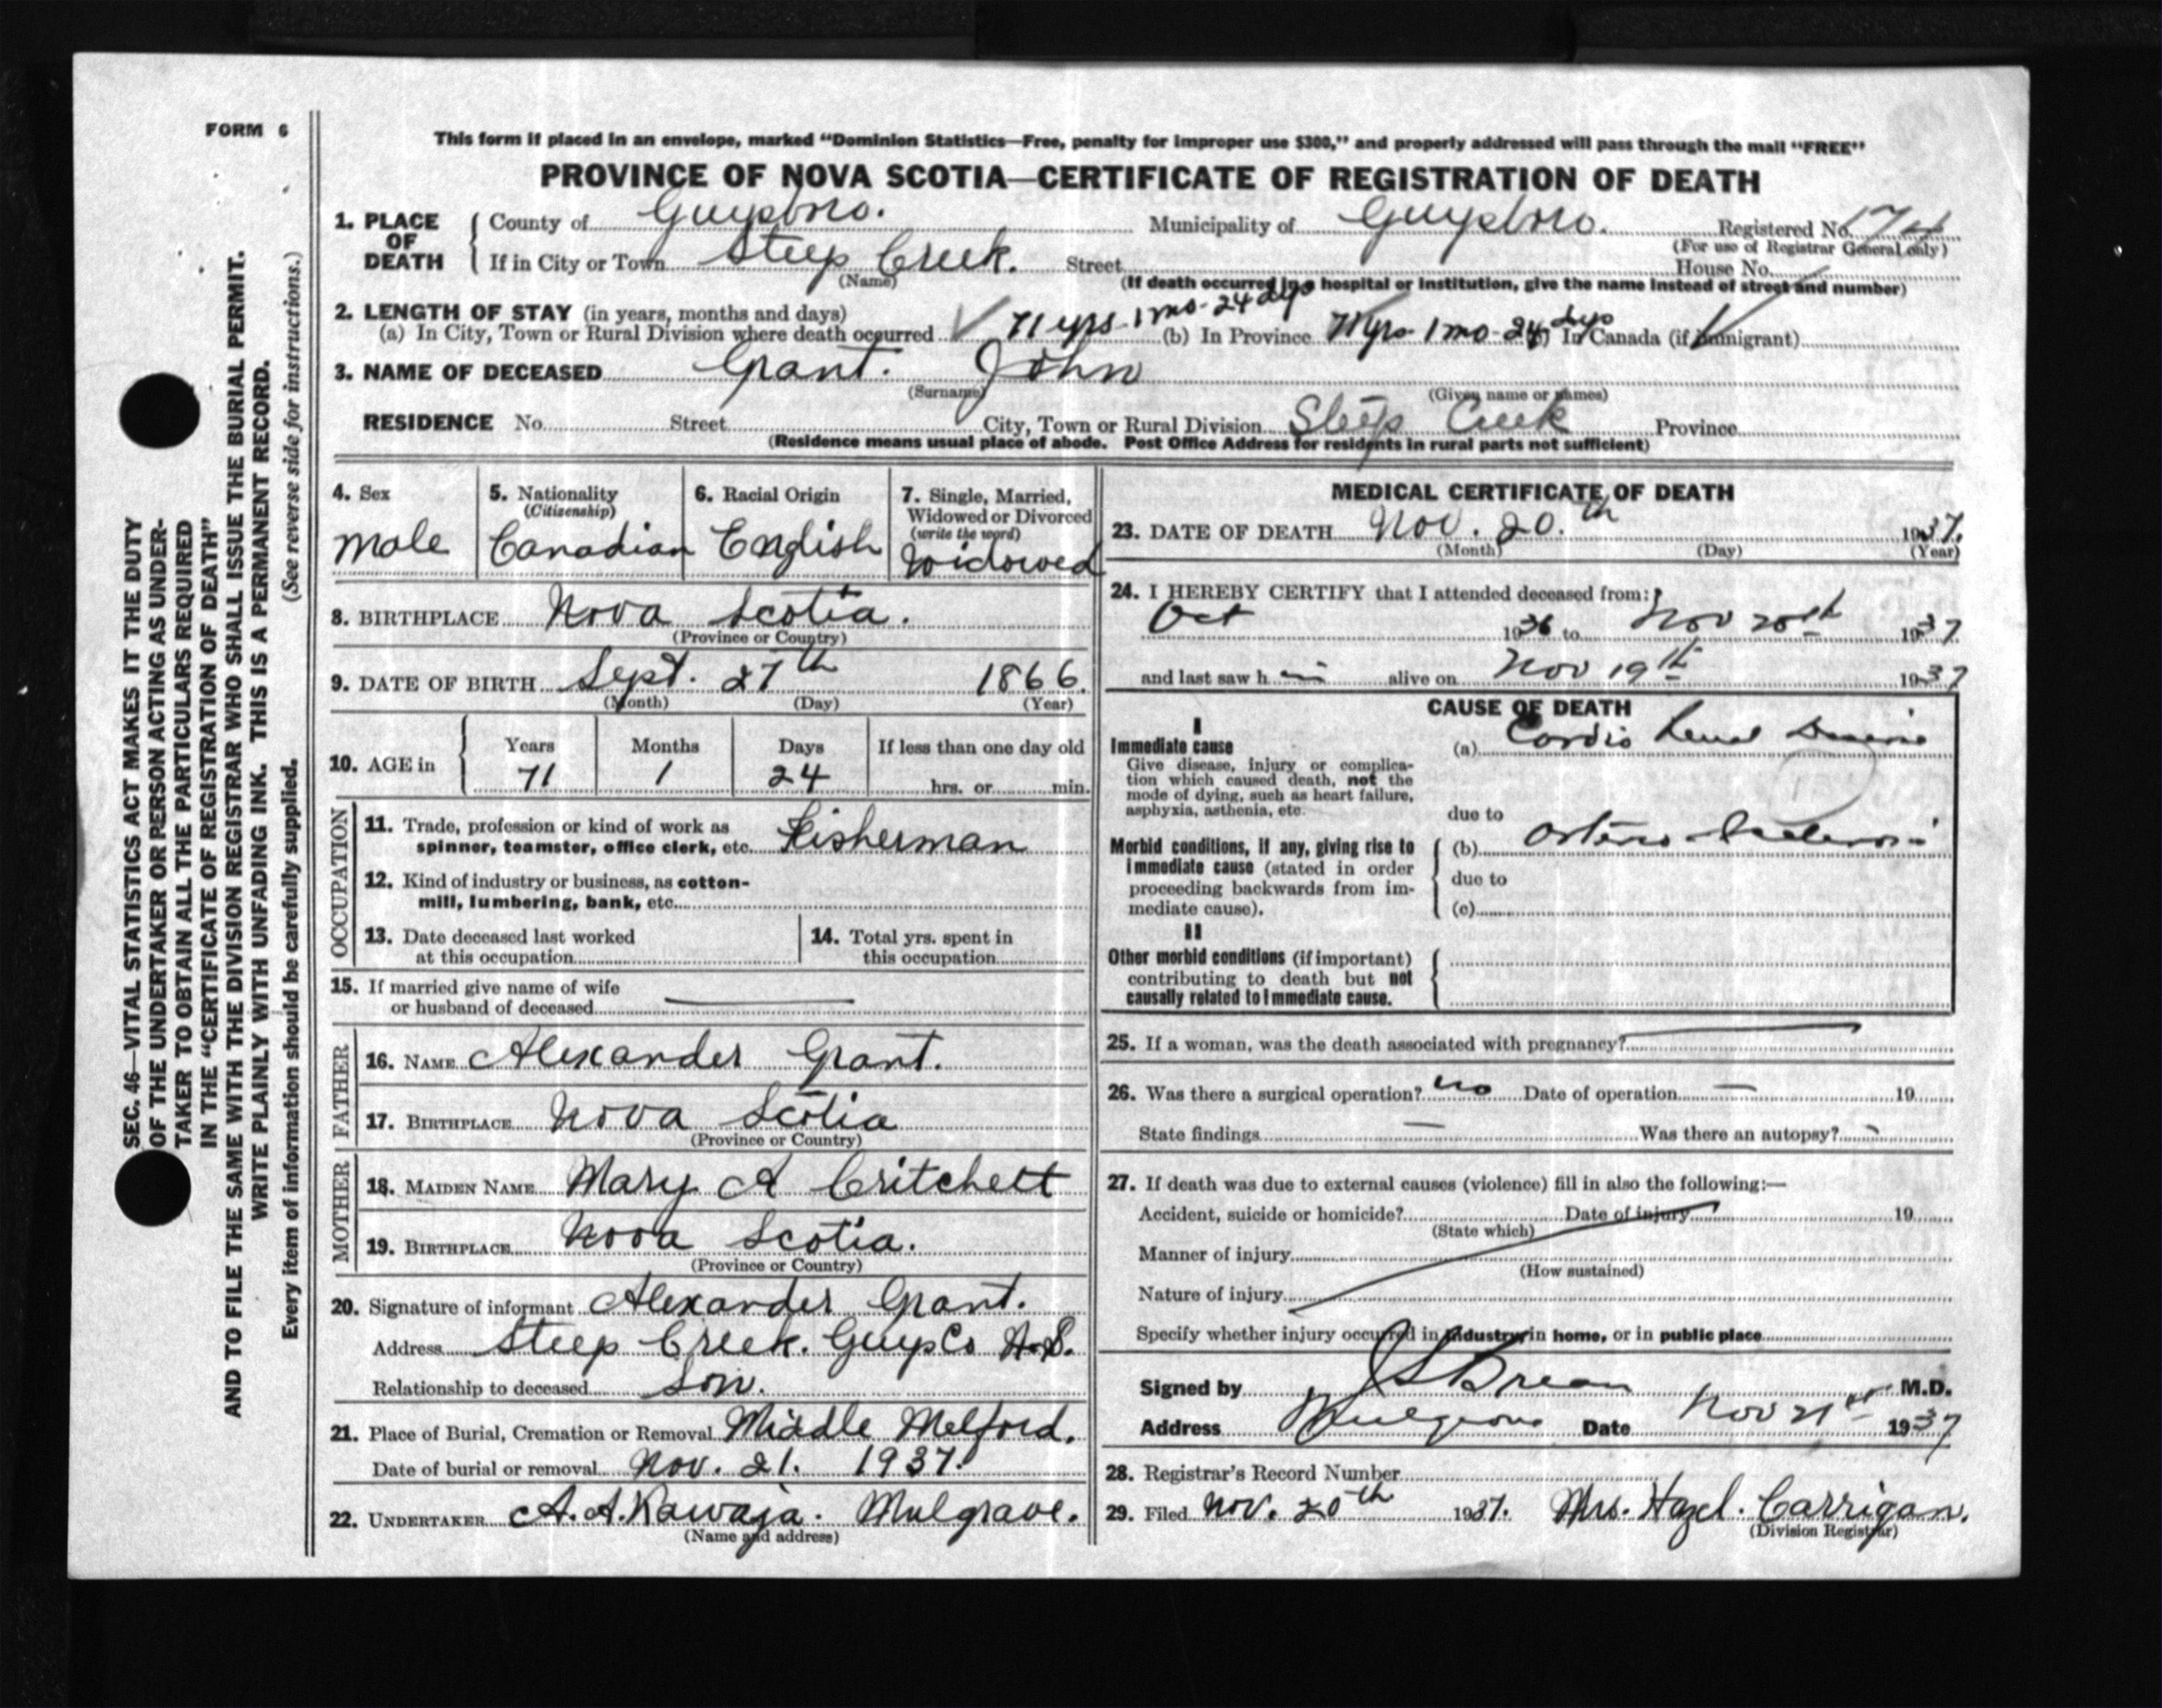 FORM 6
This form if placed in an envelope, marked “Dominion Statistics—Free, penalty for improper use $300,” and properly addressed will pass through the mail “FREE”
PROVINCE OF NOVA SCOTIA—CERTIFICATE OF REGISTRATION OF DEATH
1. PLACE OF DEATH { County of Guysboro. Municipality of Guysboro. Registered No. 174
(For use of Registrar General only)
If in City or Town Steep Creek. Street House No.
(Name) (If death occurred in a hospital or institution, give the name instead of street and number)
2. LENGTH OF STAY (in years, months and days)
(a) In City, Town or Rural Division where death occurred 71 yrs - 1 mo - 24 dys (b) In Province 71 yrs - 1 mo - 24 dys (c) In Canada (if immigrant)
3. NAME OF DECEASED Grant. John
(Surname) (Given name or names)
RESIDENCE No. Street City, Town or Rural Division Steep Creek Province
(Residence means usual place of abode. Post Office Address for residents in rural parts not sufficient)
4. Sex
male
5. Nationality
(Citizenship)
Canadian
6. Racial Origin
English
7. Single, Married,
Widowed or Divorced
(write the word)
Widowed
8. BIRTHPLACE Nova Scotia.
(Province or Country)
9. DATE OF BIRTH Sept. 27th 1866.
(Month) (Day) (Year)
10. AGE in { Years Months Days If less than one day old
71 1 24 hrs. or min.
OCCUPATION
11. Trade, profession or kind of work as
spinner, teamster, office clerk, etc. Fisherman
12. Kind of industry or business, as cotton-
mill, lumbering, bank, etc.
13. Date deceased last worked
at this occupation
14. Total yrs. spent in
this occupation
15. If married give name of wife
or husband of deceased —
FATHER
16. NAME Alexander Grant.
17. BIRTHPLACE Nova Scotia
(Province or Country)
MOTHER
18. MAIDEN NAME Mary A Critchett
19. BIRTHPLACE Nova Scotia.
(Province or Country)
20. Signature of informant Alexander Grant.
Address Steep Creek. Guys Co N.S.
Relationship to deceased Son.
21. Place of Burial, Cremation or Removal Middle Melford.
Date of burial or removal Nov. 21. 1937.
22. UNDERTAKER A. A. Kawaja. Mulgrave.
(Name and address)
MEDICAL CERTIFICATE OF DEATH
23. DATE OF DEATH Nov. 20.th 1937.
(Month) (Day) (Year)
24. I HEREBY CERTIFY that I attended deceased from:
Oct 1936 to Nov 20th 1937
and last saw h im alive on Nov 19th 1937
CAUSE OF DEATH
I
Immediate cause
Give disease, injury or complica-
tion which caused death, not the
mode of dying, such as heart failure,
asphyxia, asthenia, etc.
(a) Cardio Renal Disease
due to
Morbid conditions, if any, giving rise to
immediate cause (stated in order
proceeding backwards from im-
mediate cause).
(b) Arterio Sclerosis
due to
(c)
II
Other morbid conditions (if important)
contributing to death but not
causally related to immediate cause.
25. If a woman, was the death associated with pregnancy? —
26. Was there a surgical operation? no Date of operation — 19
State findings — Was there an autopsy? -
27. If death was due to external causes (violence) fill in also the following:—
Accident, suicide or homicide? Date of injury 19
(State which)
Manner of injury
(How sustained)
Nature of injury
Specify whether injury occurred in industry, in home, or in public place
Signed by M.D.
Address Mulgrave Date Nov 21st 1937
28. Registrar's Record Number
29. Filed Nov. 20th 1937. Mrs. Hazel. Carrigan.
(Division Registrar)
SEC. 46—VITAL STATISTICS ACT MAKES IT THE DUTY
OF THE UNDERTAKER OR PERSON ACTING AS UNDER-
TAKER TO OBTAIN ALL THE PARTICULARS REQUIRED
IN THE “CERTIFICATE OF REGISTRATION OF DEATH”
AND TO FILE THE SAME WITH THE DIVISION REGISTRAR WHO SHALL ISSUE THE BURIAL PERMIT.
WRITE PLAINLY WITH UNFADING INK. THIS IS A PERMANENT RECORD.
Every item of information should be carefully supplied. (See reverse side for instructions.)